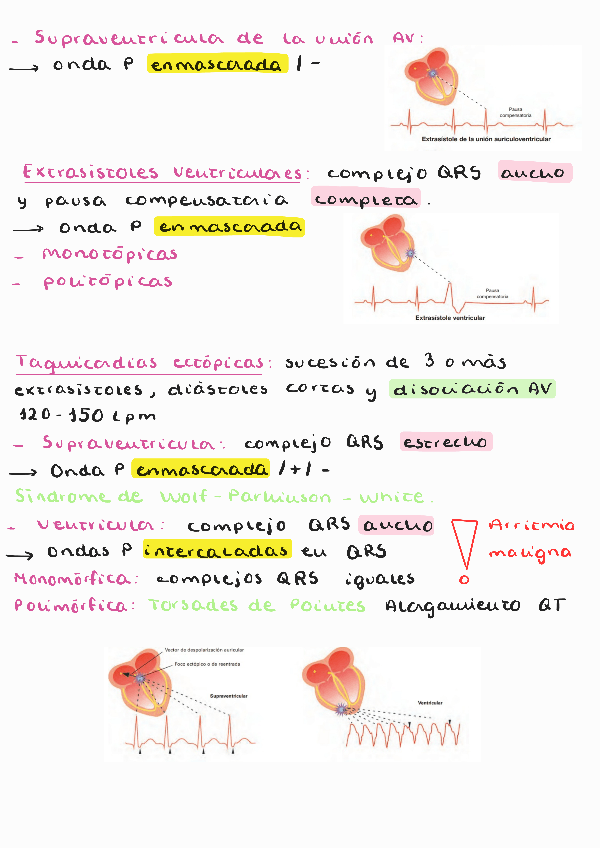 - Supraventricula de la unión AV:
→ onda P enmascarada / -
Pausa
compensatoria
Extrasístole de la unión auriculoventricular
Extrasístoles Ventriculares: complejo QRS ancho
y pausa compensatoria completa.
→ onda P enmascarada
- Monotópicas
- politópicas
Pausa
compensatoria
Extrasístole ventricular
Taquicardias ectópicas: sucesión de 3 o más
extrasístoles, diástoles cortas y disociación AV
120-150 lpm
- Supraventricula: complejo QRS estrecho
→ Onda P enmascarada / + / -
Síndrome de Wolf-Parkinson-White.
- Ventricula: complejo QRS ancho
Arritmia
→ ondas P intercaladas en QRS
maligna
Monomórfica: complejos QRS iguales
Polimórfica: Torsades de Pointes Alargamiento QT
Vector de despolarización auricular
Foco ectópico o de reentrada
Supraventricular
Ventricular